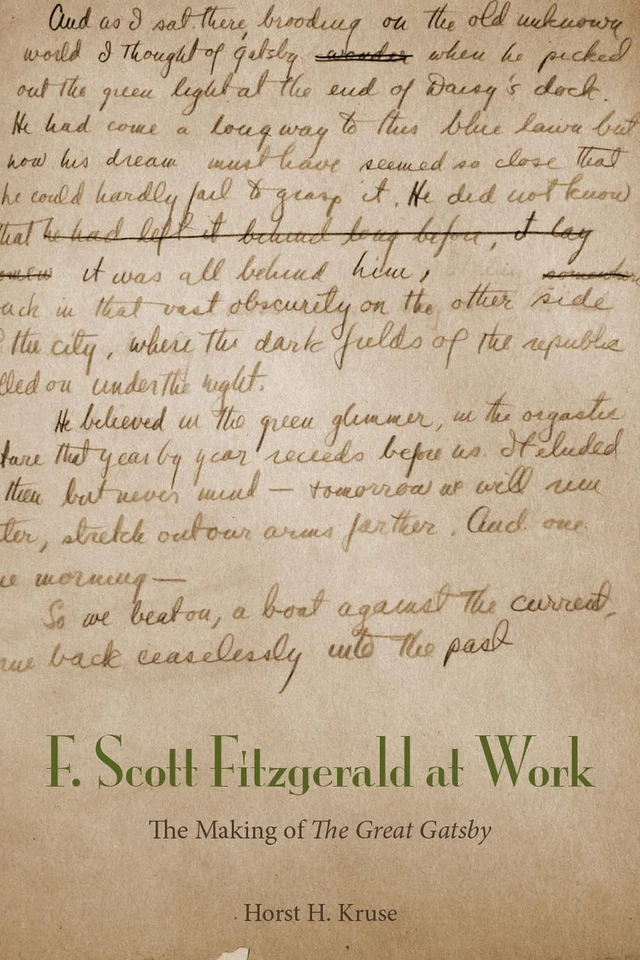 And as I sat there, brooding on the old unknown
world I thought of Gatsby wonder when he picked
out the green light at the end of Daisy's dock.
He had come a long way to this blue lawn but
now his dream must have seemed so close that
he could hardly fail to grasp it. He did not know
that he had left it behind long before, it lay
it was all behind him,
ack in that vast obscurity on the other side
the city, where the dark fields of the republic
lled on under the night.
He believed in the green glimmer, in the orgastic
ture that year by year recedes before us. It eluded
then but never mind — tomorrow we will run
ter, stretch out our arms farther. And one
ne morning —
So we beat on, a boat against the current,
rne back ceaselessly into the past
F. Scott Fitzgerald at Work
The Making of The Great Gatsby
Horst H. Kruse